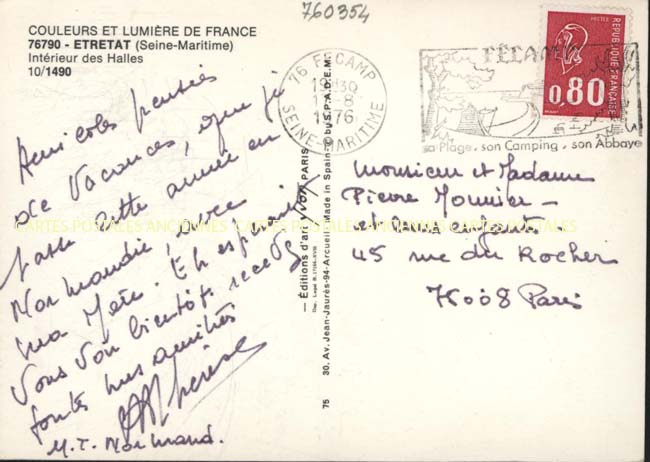 760354
COULEURS ET LUMIÈRE DE FRANCE
76790 - ETRETAT (Seine-Maritime)
Intérieur des Halles
10/1490
76 FECAMP
1976
SEINE-MARITIME
FÉCAMP
sa Plage, son Camping, son Abbaye
POSTES
REPUBLIQUE FRANÇAISE
0,80
Amicales pensées
de Vacances, que j'ai
passé cette année en
Normandie, avec
ma Mère. En espérant
Vous Voir bientôt recevez
toutes mes amitiés
M Thérèse
M.T. Normand.
— Éditions d'art yvon, PARIS —
30, Av. Jean-Jaurès-94-Arcueil Made in Spain © by S.P.A.D.E.M.
75
Monsieur et Madame
Pierre Mounier -
et leurs enfants
45 rue du Rocher
75008 Paris
CARTES POSTALES ANCIENNES CARTES POSTALES ANCIENNES CARTES POSTALES ANCIENNES